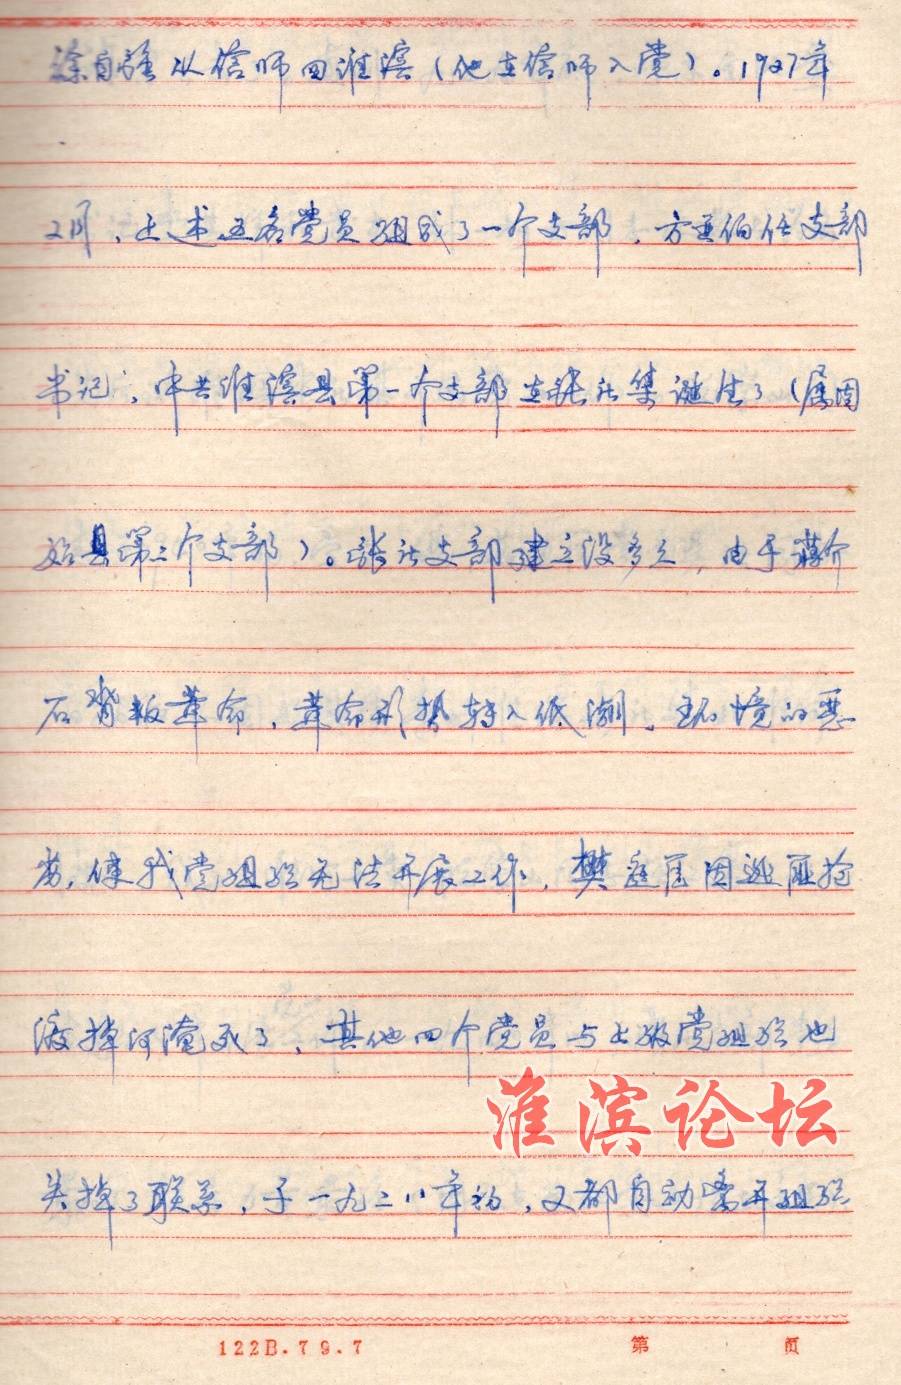 涂自强从信师回淮滨(他在信师入党)。1927年
2月,上述五名党员组成了一个支部,方亚伯任支部
书记,中共淮滨县第一个支部在张社集诞生了(属固
始县第二个支部)。张社支部建立没多久,由于蒋介
石背叛革命,革命形势转入低潮。环境的恶
劣,使我党组织无法开展工作,樊庭因逃匪抢
渡掉河淹死了,其他四个党员与上级党组织也
淮滨论坛
失掉了联系,于一九二八年初,又都自动离开组织
122B.79.7 第 页